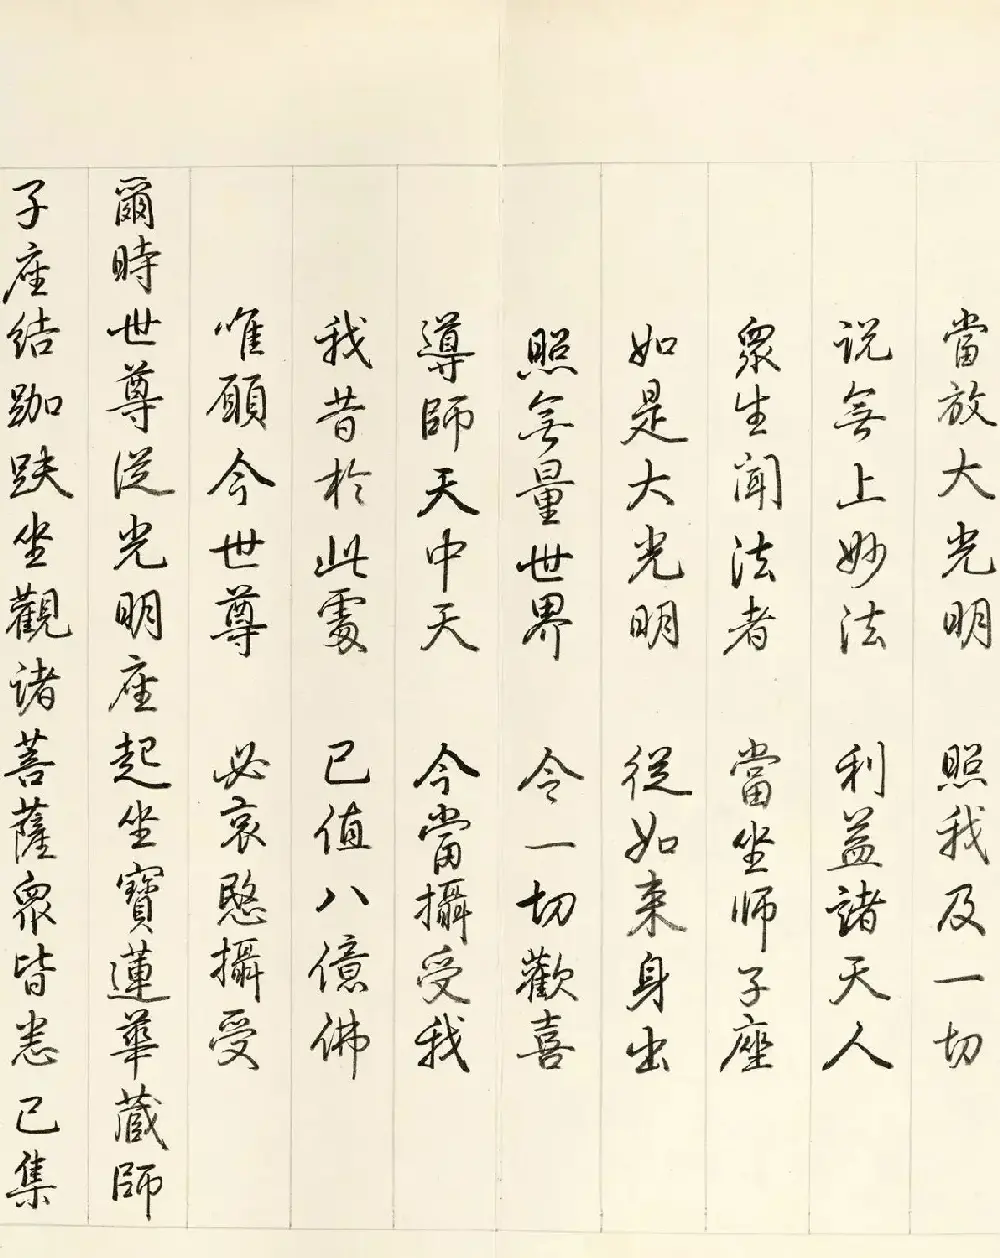 當放大光明 照我及一切
说無上妙法 利益諸天人
衆生聞法者 當坐师子座
如是大光明 從如来身出
照無量世界 令一切歡喜
導師天中天 今當攝受我
我昔於此處 已值八億佛
唯願今世尊 必哀愍攝受
爾時世尊從光明座起坐寶蓮華藏師
子座结跏趺坐觀诸菩薩衆皆悉已集